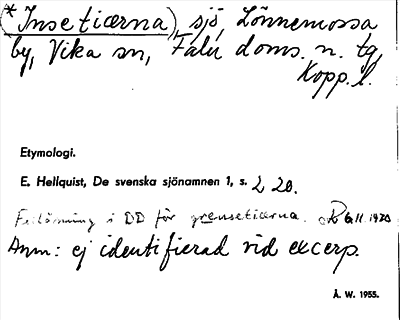 (*Insetiærna), sjö, Lönnemossa
by, Vika sn, Falu doms. n. tg,
Kopp. l.
Etymologi.
E. Hellquist, De svenska sjönamnen 1, s. 220.
i DD för grensetiærna. 6.11.1920
Anm: ej identifierad vid excerp.
Å. W. 1955.